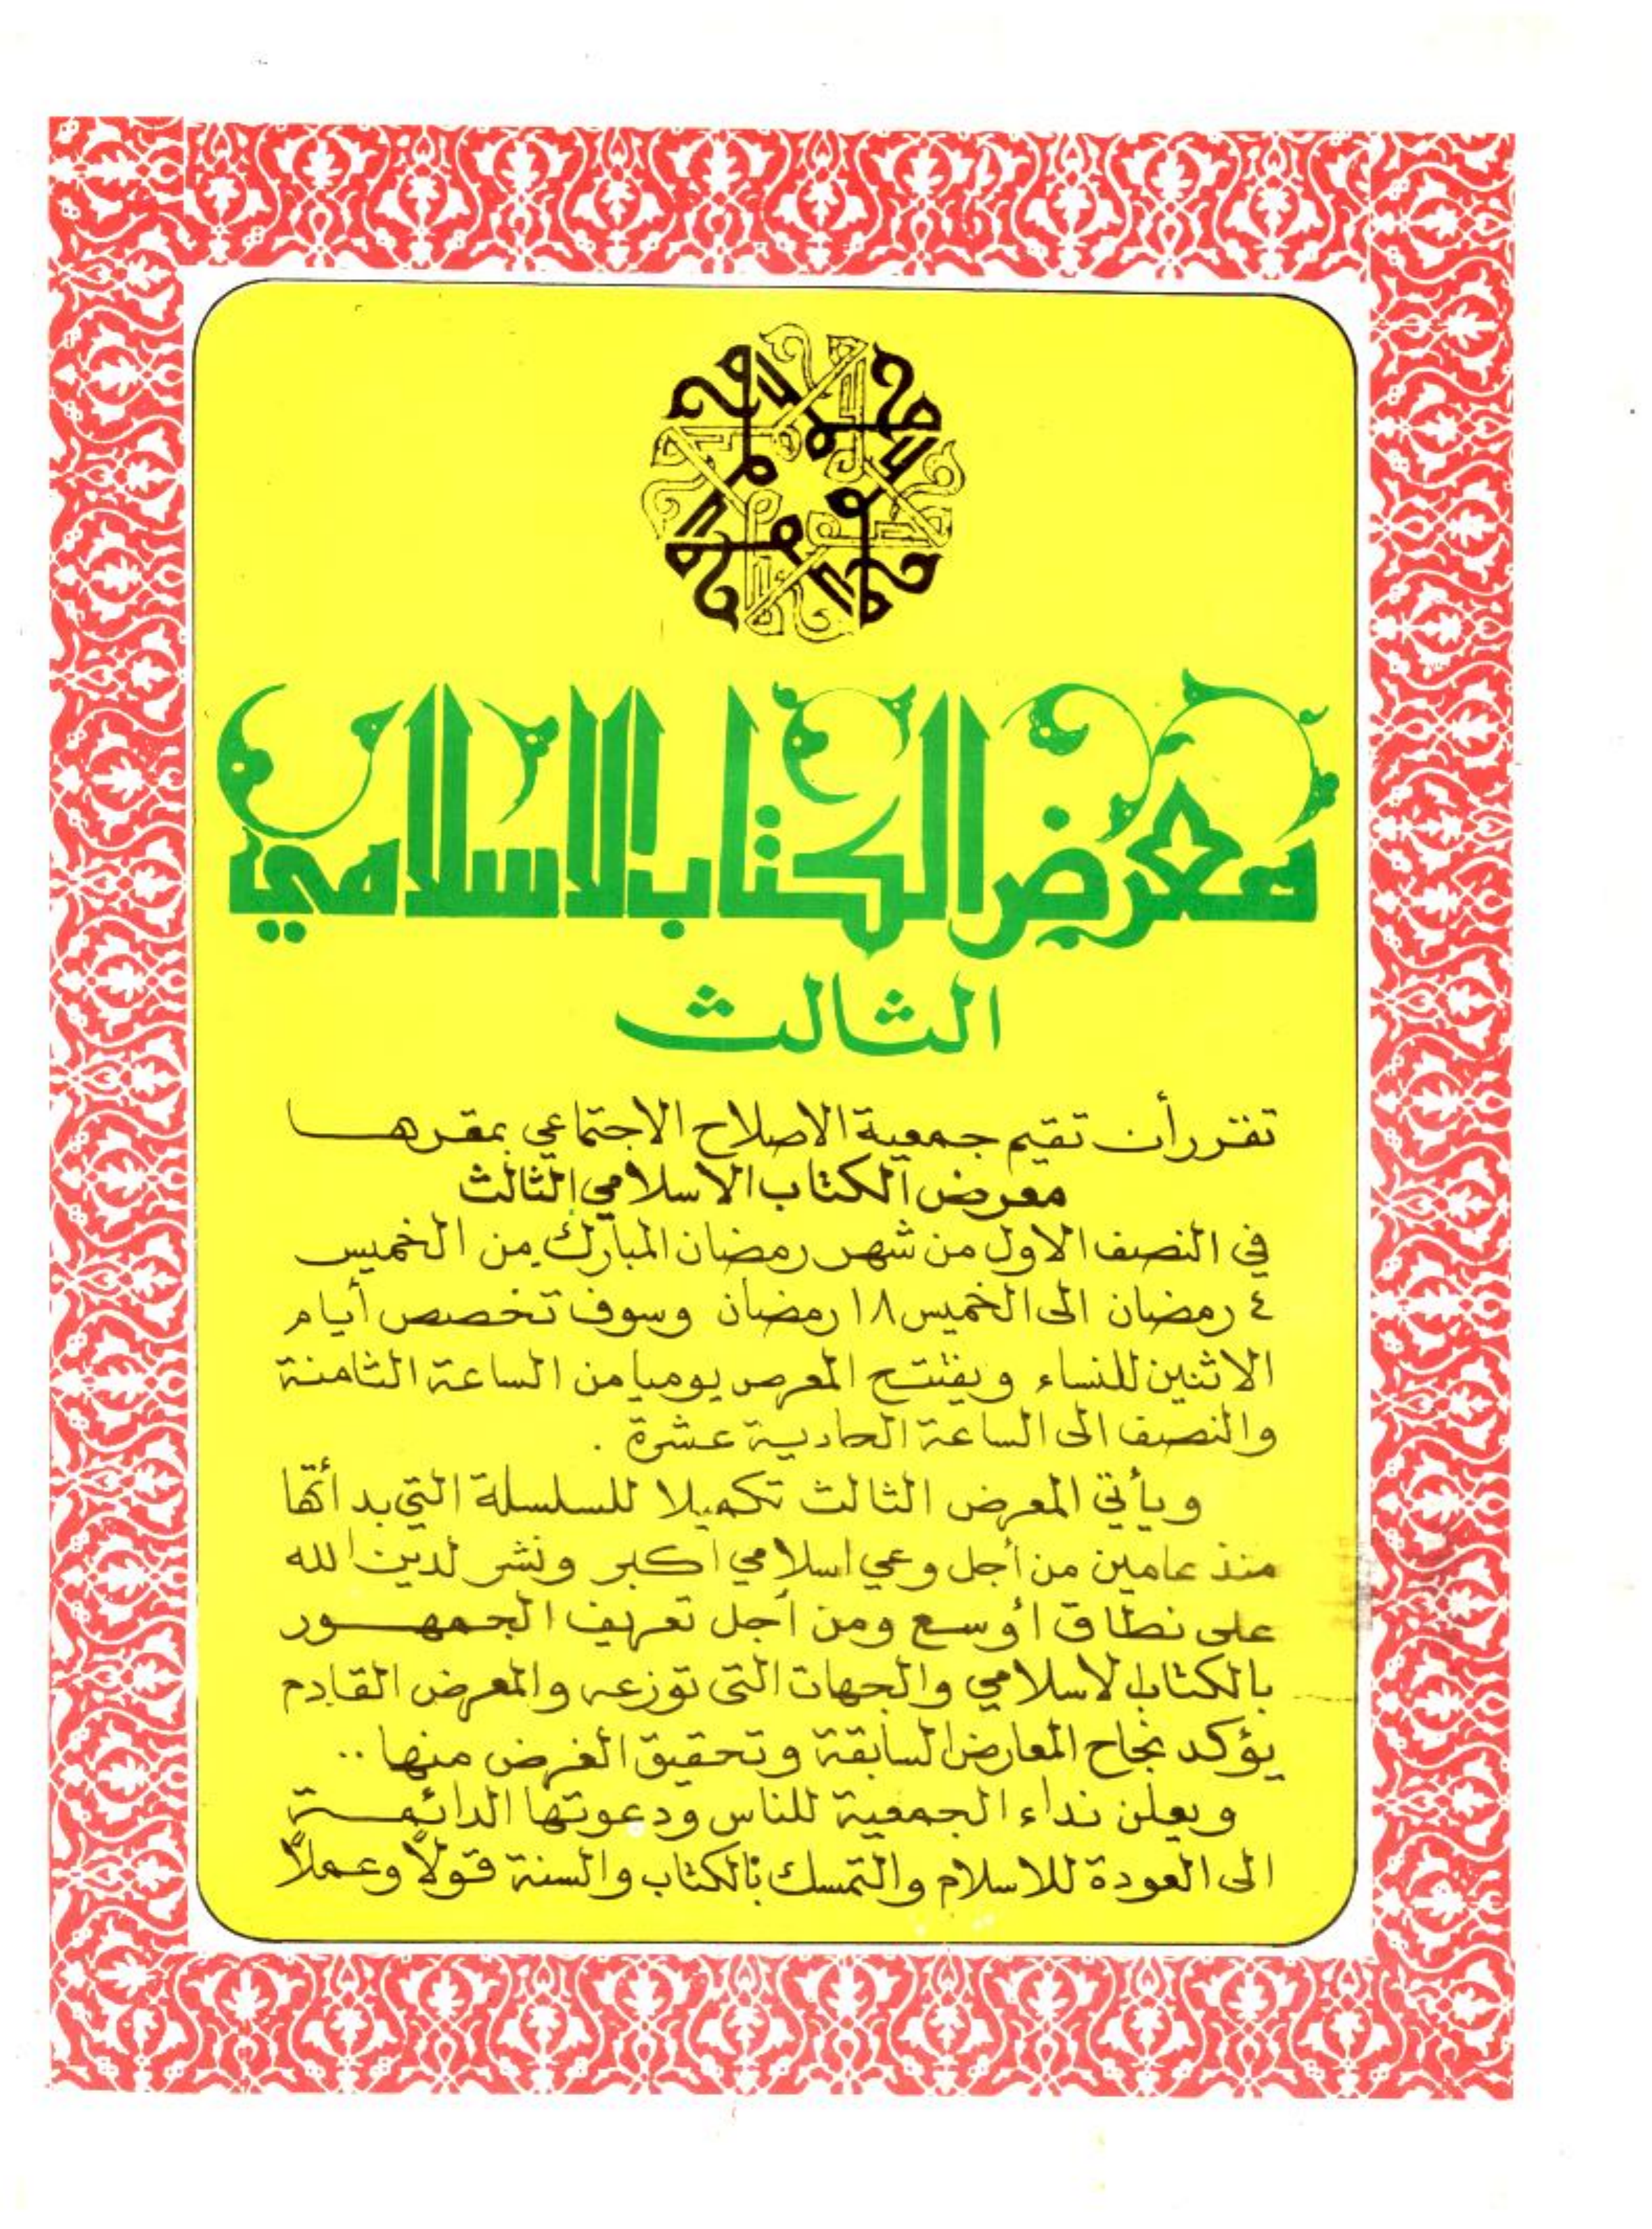 معرض الكتاب الاسلامي
الثالث
تقرر أن تقيم جمعية الاصلاح الاجتماعي بمقرها
معرض الكتاب الاسلامي الثالث
في النصف الاول من شهر رمضان المبارك من الخميس
٤ رمضان الى الخميس ١٨ رمضان وسوف تخصص أيام
الاثنين للنساء ويفتتح المعرض يوميا من الساعة الثامنة
والنصف الى الساعة الحادية عشرة .
ويأتي المعرض الثالث تكميلا للسلسلة التي بدأتها
منذ عامين من أجل وعي اسلامي أكبر ونشر لدين الله
على نطاق أوسع ومن أجل تعريف الجمهور
بالكتاب الاسلامي والجهات التي توزعه والمعرض القادم
يؤكد نجاح المعارض السابقة وتحقيق الغرض منها ..
ويعلن نداء الجمعية للناس ودعوتها الدائمة
الى العودة للاسلام والتمسك بالكتاب والسنة قولاً وعملاً